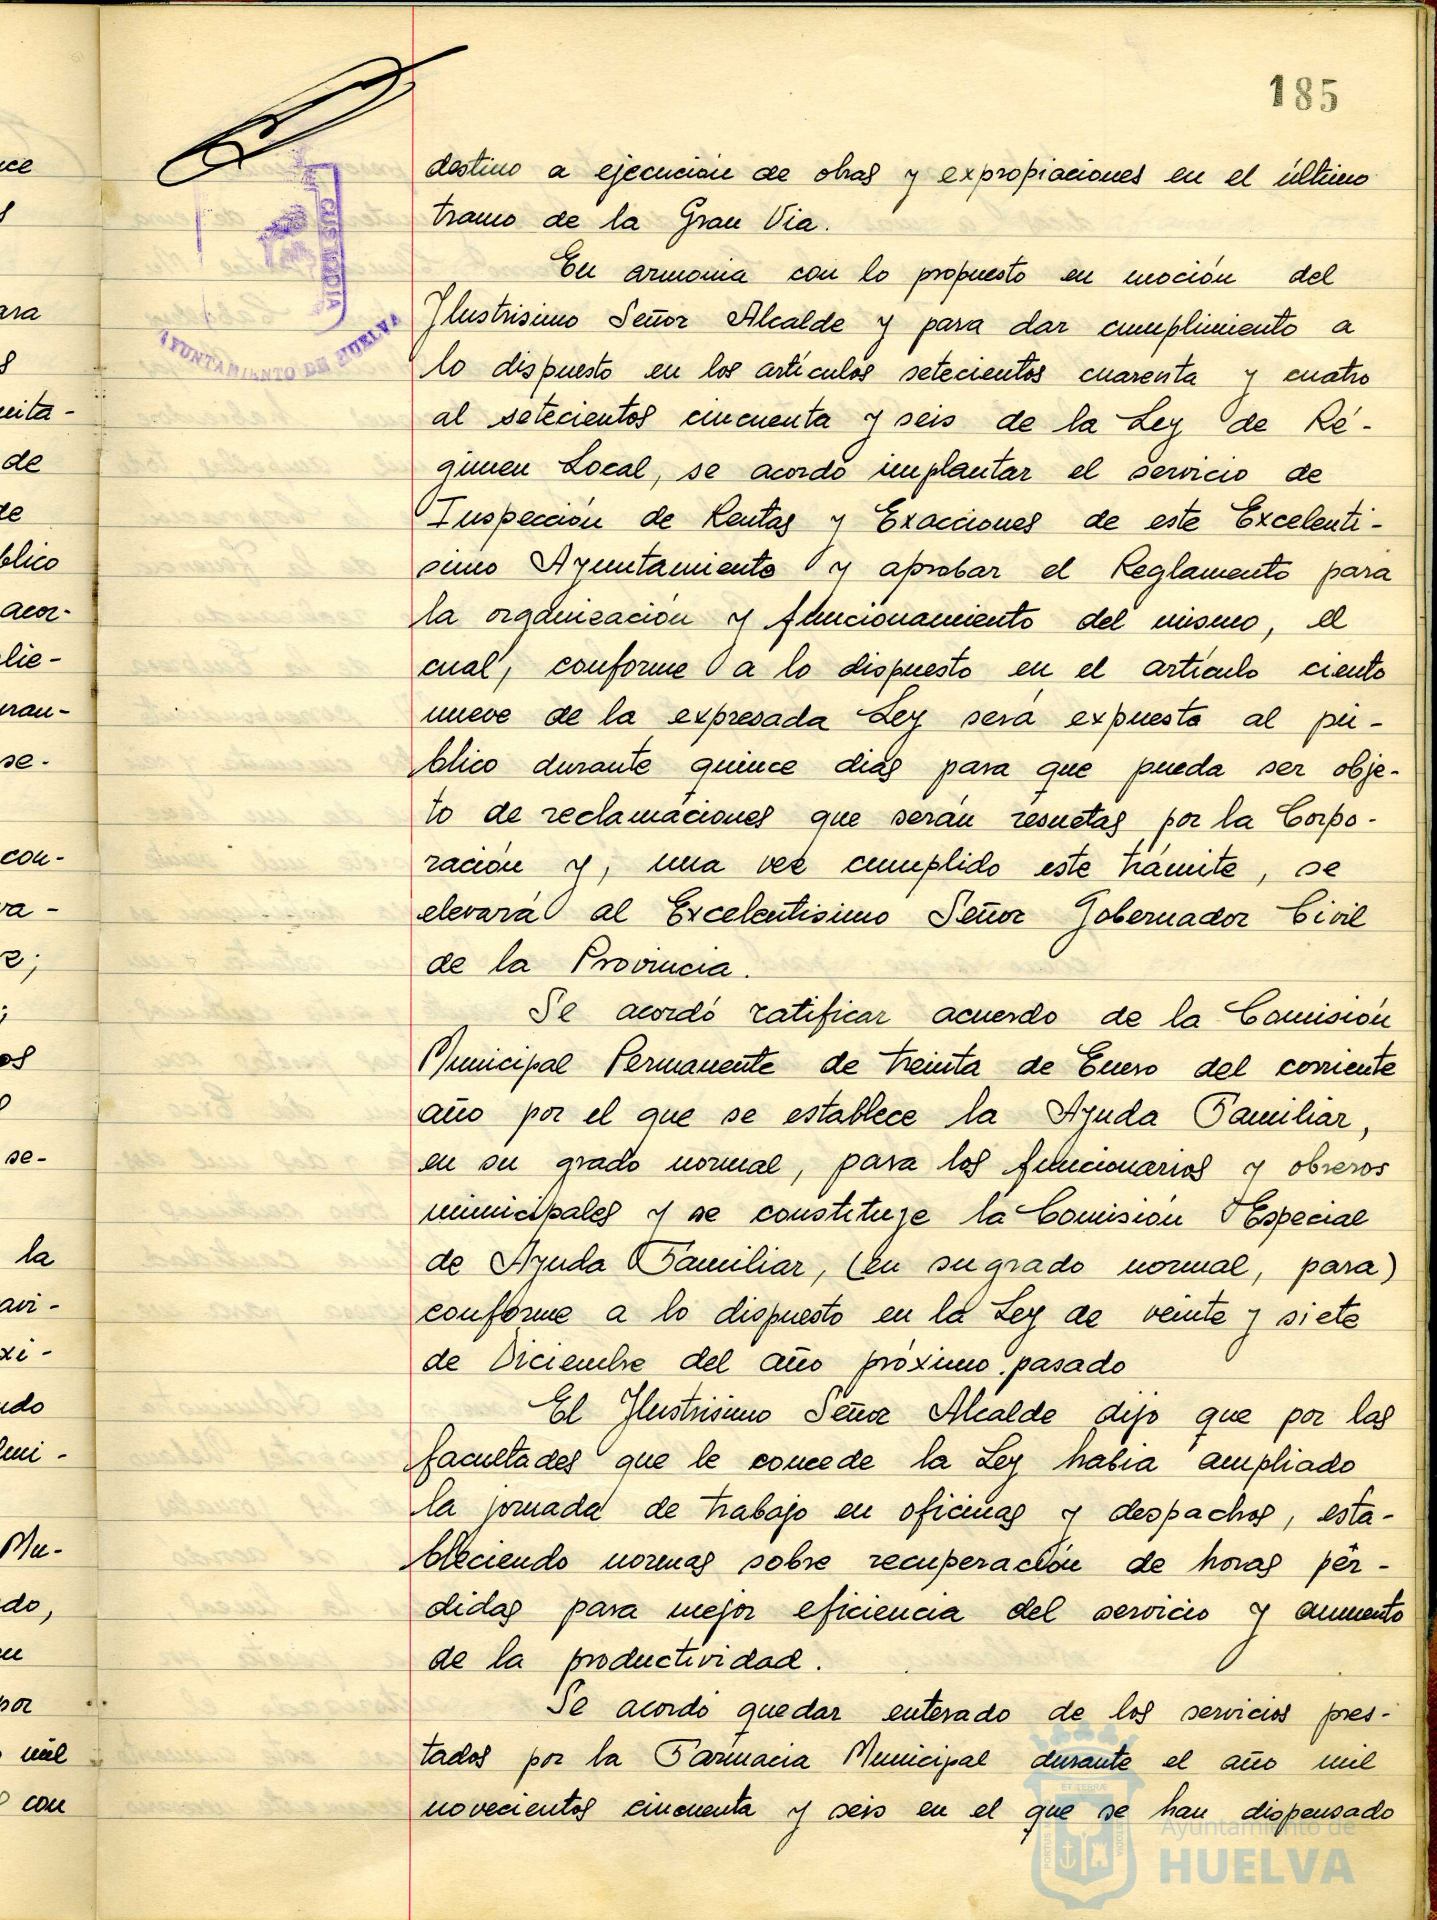 185
destino a ejecución de obras y expropiaciones en el último
tramo de la Gran Via.
En armonia con lo propuesto en moción del
Ilustrisimo Señor Alcalde y para dar cumplimiento a
lo dispuesto en los artículos setecientos cuarenta y cuatro
al setecientos cincuenta y seis de la Ley de Ré-
gimen Local, se acordó implantar el servicio de
Inspección de Rentas y Exacciones de este Excelenti-
simo Ayuntamiento y aprobar el Reglamento para
la organización y funcionamiento del mismo, el
cual, conforme a lo dispuesto en el artículo ciento
nueve de la expresada Ley será expuesto al pú-
blico durante quince dias para que pueda ser obje-
to de reclamaciones que serán resuetas por la Corpo-
ración y, una vez cumplido este trámite, se
elevará al Excelentisimo Señor Gobernador Civil
de la Provincia.
Se acordó ratificar acuerdo de la Comisión
Municipal Permanente de treinta de Enero del corriente
año por el que se establece la Ayuda Familiar,
en su grado normal, para los funcionarios y obreros
municipales y se constituye la Comisión Especial
de Ayuda Familiar, (en su grado normal, para)
conforme a lo dispuesto en la Ley de veinte y siete
de Diciembre del año próximo pasado
El Ilustrisimo Señor Alcalde dijo que por las
facultades que le concede la Ley habia ampliado
la jornada de trabajo en oficinas y despachos, esta-
bleciendo normas sobre recuperación de horas pér-
didas para mejor eficiencia del servicio y aumento
de la productividad.
Se acordó quedar enterado de los servicios pres-
tados por la Farmacia Municipal durante el año mil
novecientos cincuenta y seis en el que se han dispensado
CUSTODIA
AYUNTAMIENTO DE HUELVA
ara
de
blico
acor-
se-
con-
va-
se-
la
avi-
xi-
Mu-
do,
por
mil
con
Ayuntamiento de
HUELVA